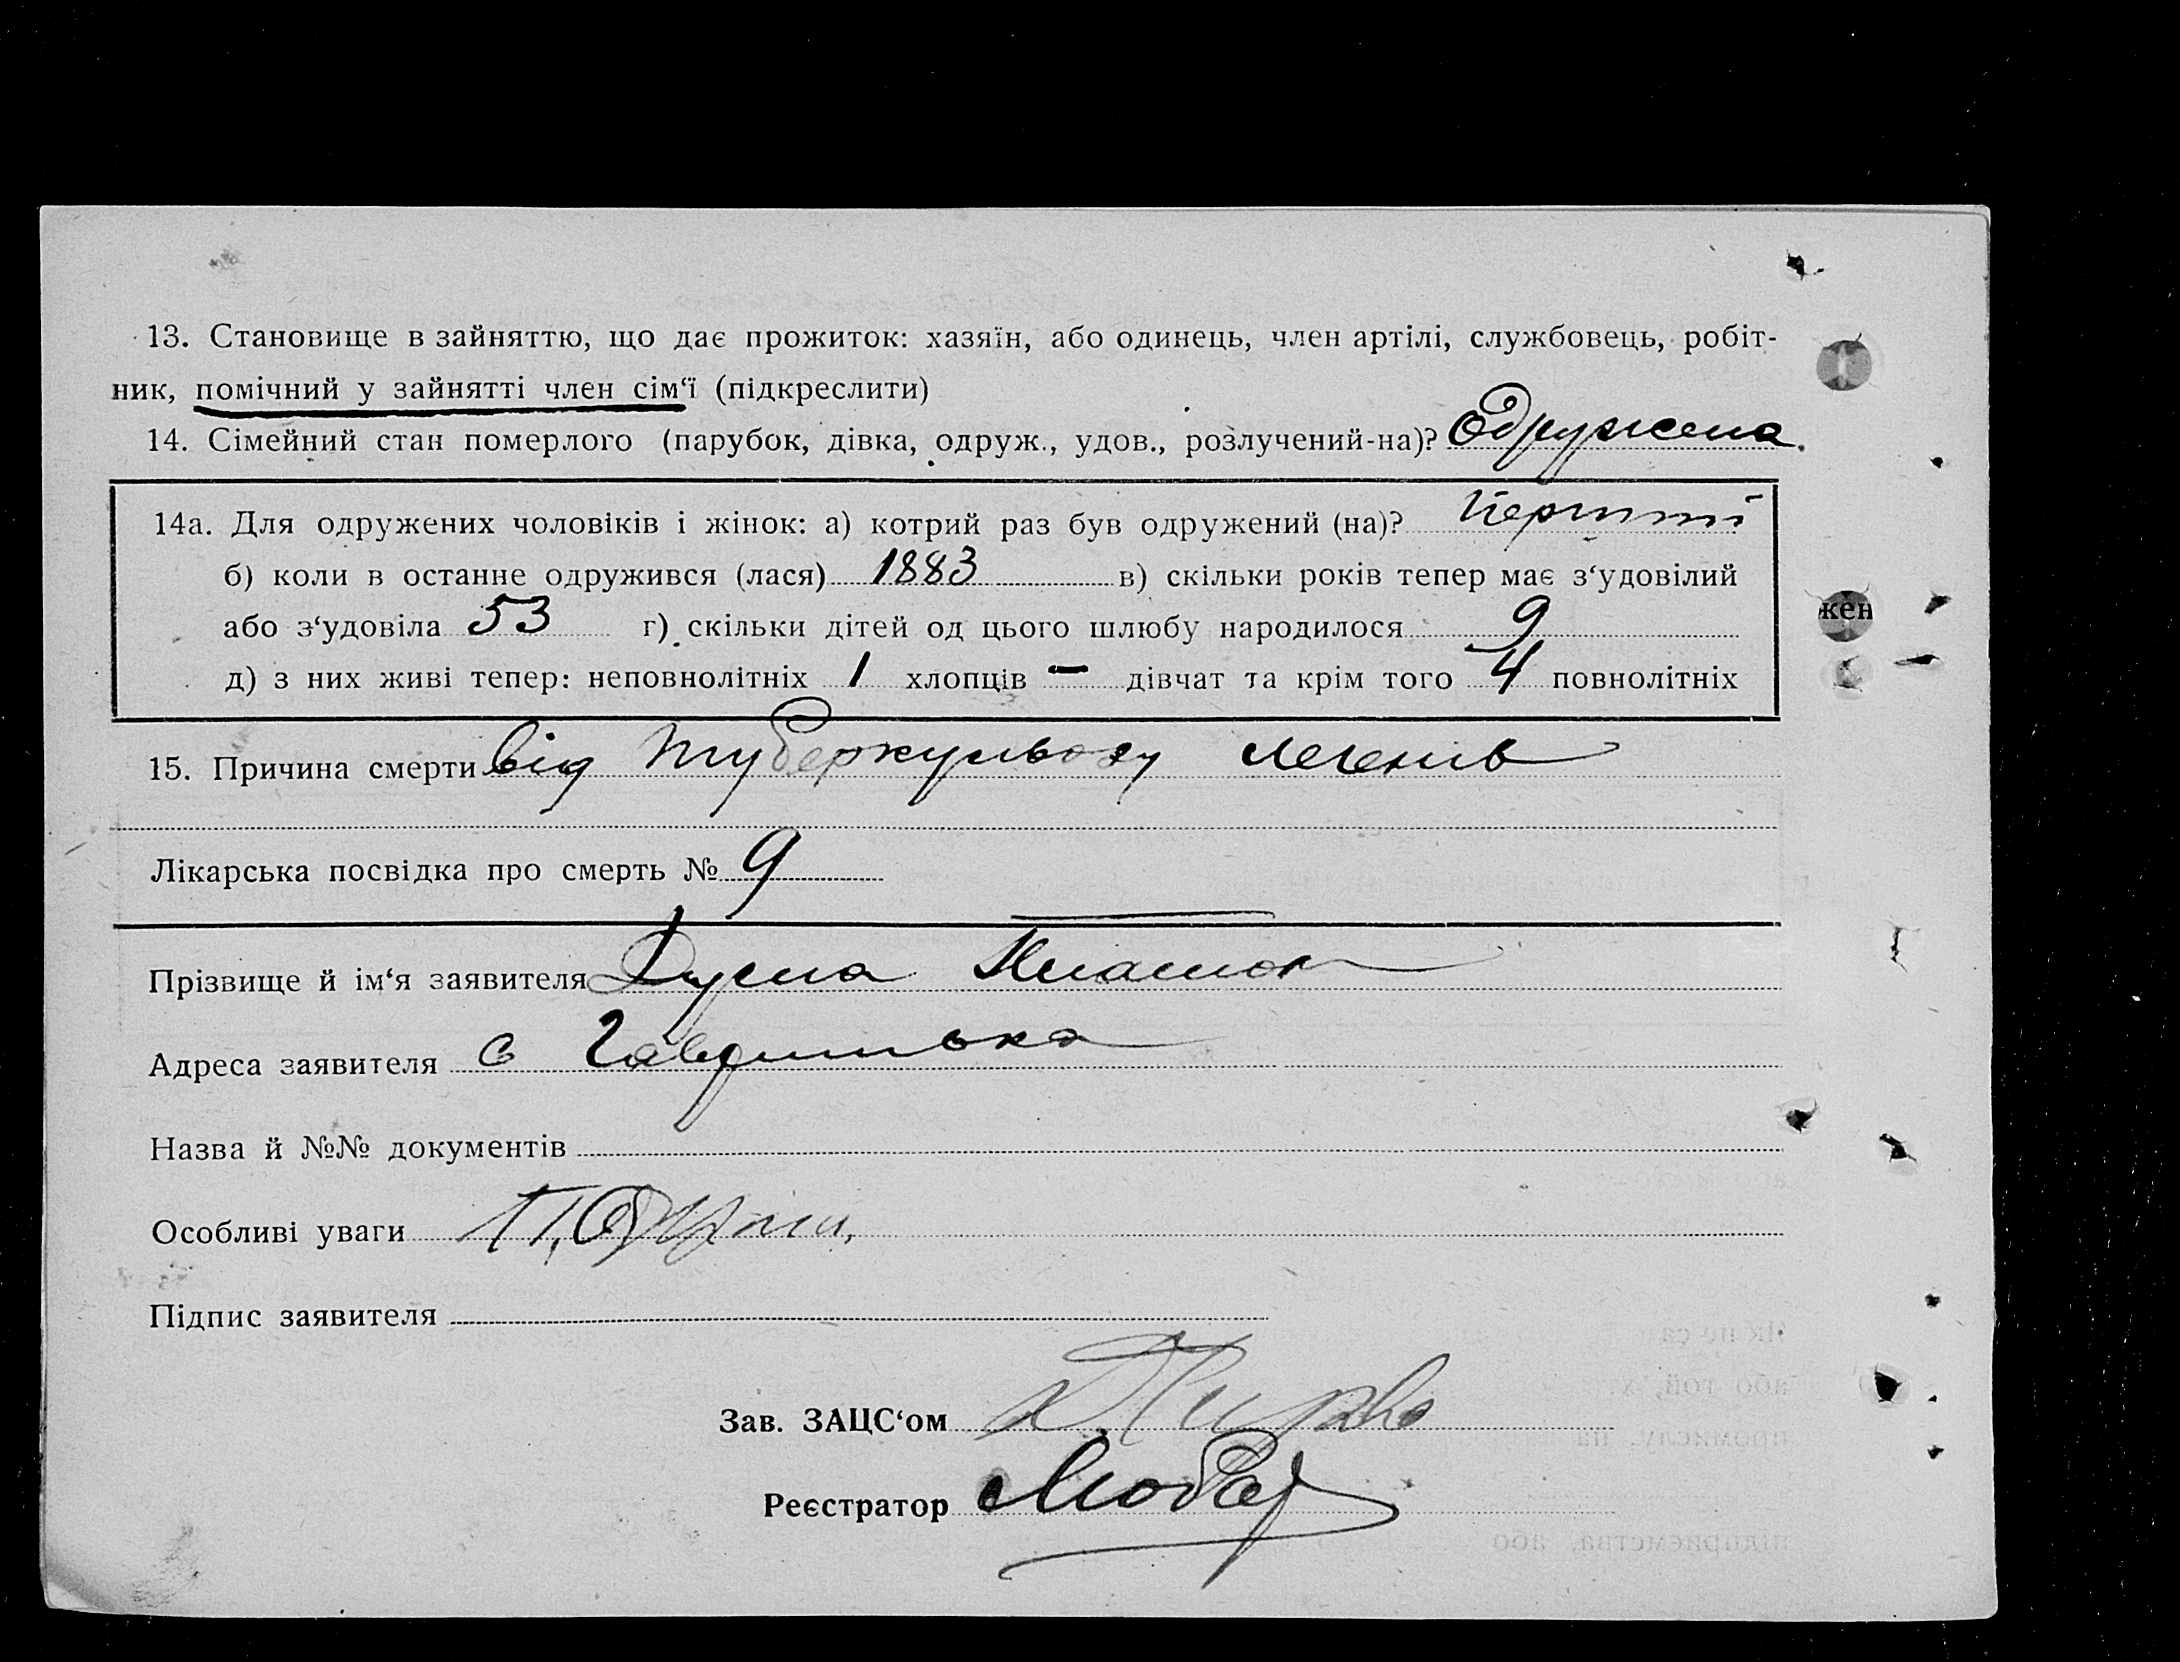 13. Становище в зайняттю, що дає прожиток: хазяїн, або одинець, член артілі, службовець, робіт-
ник, помічний у зайнятті член сім‘ї (підкреслити)
14. Сімейний стан померлого (парубок, дівка, одруж., удов., розлучений-на)? Одружена.
14а. Для одружених чоловіків і жінок: а) котрий раз був одружений (на)? Перший
б) коли в останне одружився (лася) 1883 в) скільки років тепер має з‘удовілий
або з‘удовіла 53 г) скільки дітей од цього шлюбу народилося 9
д) з них живі тепер: неповнолітніх 1 хлопців — дівчат та крім того 4 повнолітніх
жен
15. Причина смерти від туберкульозу легенів
Лікарська посвідка про смерть № 9
Прізвище й ім‘я заявителя
Адреса заявителя с Гавришівка
Назва й №№ документів
Особливі уваги
Підпис заявителя
Зав. ЗАЦС‘ом
Реєстратор